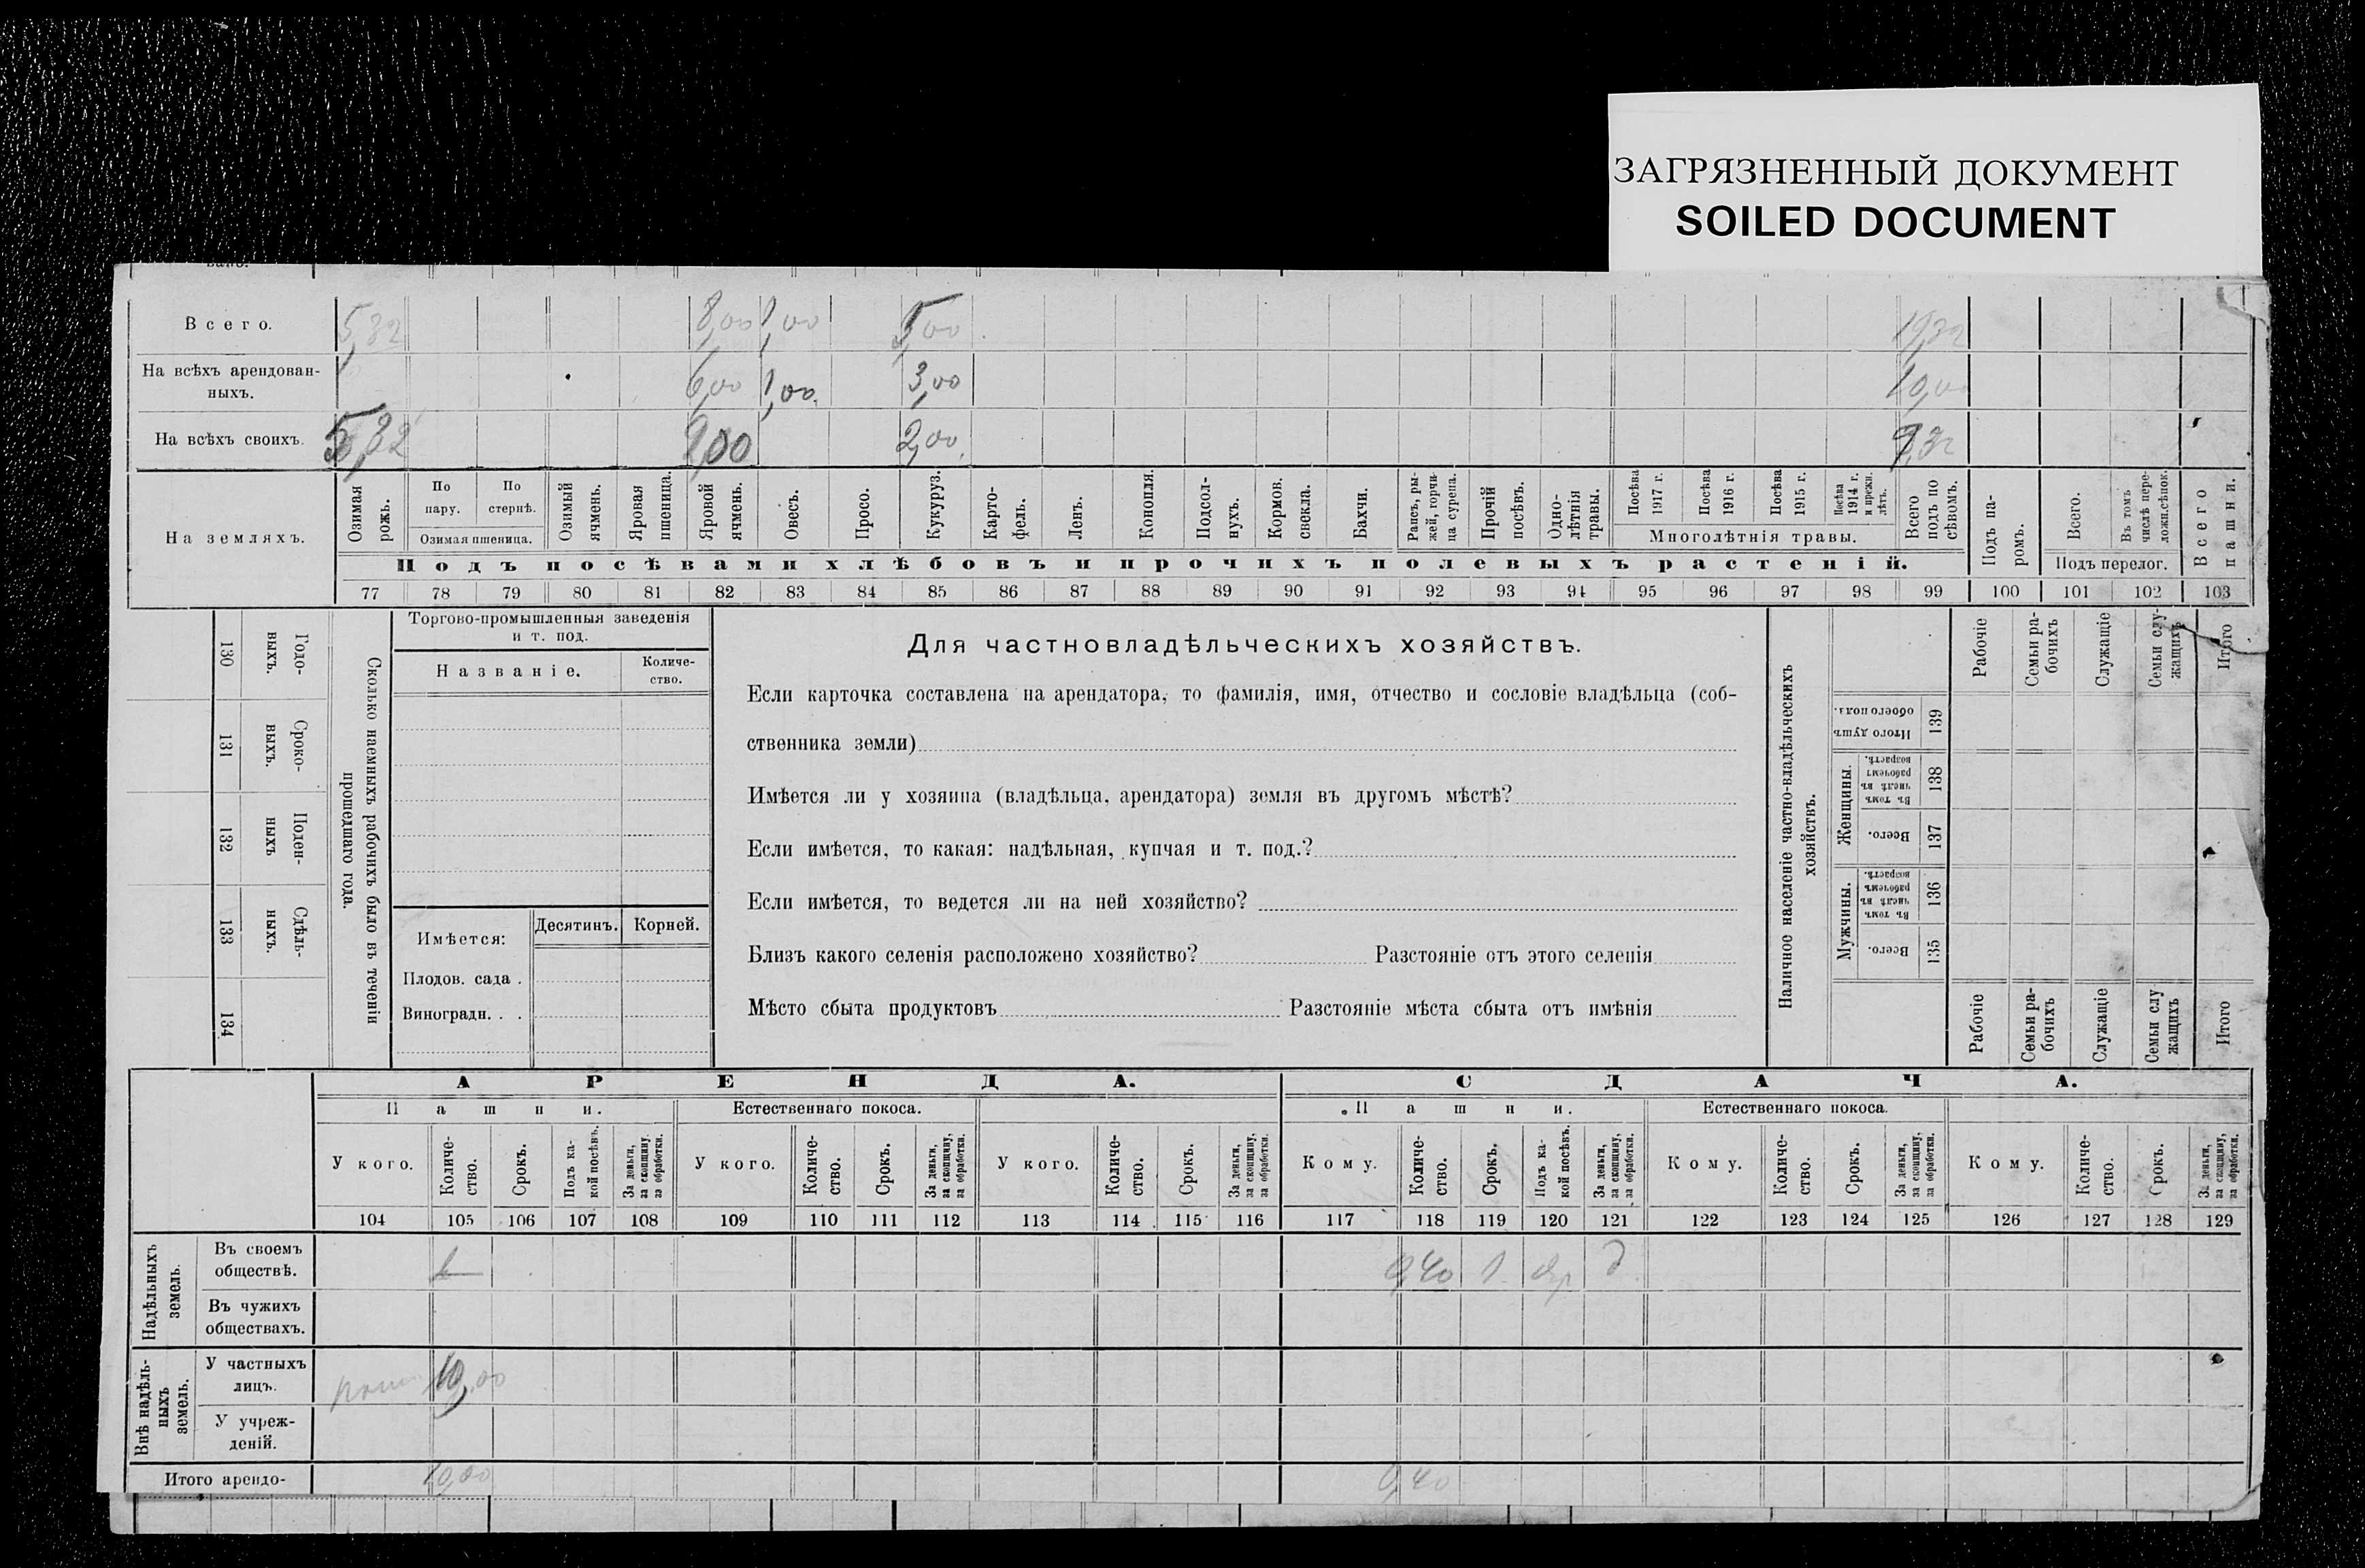 ЗАГРЯЗНЕННЫЙ ДОКУМЕНТ
SOILED DOCUMENT
Всего. 5,32 8,00 1,00 5,00 19,32
На всѣхъ арендован-
ныхъ. 6,00 1,00 3,00 10,00
На всѣхъ своихъ. 5,32 2,00 2,00 9,32
На земляхъ.
Озимая рожь.
По пару.
По стернѣ.
Озимая пшеница.
Озимый ячмень.
Яровая пшеница.
Яровой ячмень.
Овесъ.
Просо.
Кукуруз.
Карто-
фель.
Ленъ.
Конопля.
Подсол-
нухъ.
Кормов. свекла.
Бахчи.
Рапсъ, ры-
жей, горчи-
ца сурепа.
Прочій посѣвъ.
Одно-
лѣтнія травы.
Посѣва 1917 г.
Посѣва 1916 г.
Посѣва 1915 г.
Посѣва 1914 г. и прежн. лѣтъ.
Многолѣтнія травы.
Всего подъ по
сѣвомъ.
Подъ па-
ромъ.
Всего.
Въ томъ числѣ пере-
ложн.сѣнок.
Подъ перелог.
Всего пашни.
Подъ посѣвами хлѣбовъ и прочихъ полевыхъ растеній.
77 78 79 80 81 82 83 84 85 86 87 88 89 90 91 92 93 94 95 96 97 98 99 100 101 102 103
130 Годо-
выхъ.
131 Сроко-
выхъ.
132 Поден-
ныхъ
133 Сдѣль-
ныхъ.
134
Сколько наемныхъ рабочихъ было въ теченіи
прошедшаго года.
Торгово-промышленныя заведенія
и т. под.
Названіе.
Количе-
ство.
Имѣется:
Десятинъ. Корней.
Плодов. сада .
Виноградн. . .
Для частновладѣльческихъ хозяйствъ.
Если карточка составлена на арендатора, то фамилія, имя, отчество и сословіе владѣльца (соб-
ственника земли)
Имѣется ли у хозяина (владѣльца, арендатора) земля въ другомъ мѣстѣ?
Если имѣется, то какая: надѣльная, купчая и т. под.?
Если имѣется, то ведется ли на ней хозяйство?
Близъ какого селенія расположено хозяйство? Разстояніе отъ этого селенія
Мѣсто сбыта продуктовъ Разстояніе мѣста сбыта отъ имѣнія
Наличное населеніе частно-владѣльческихъ
хозяйствъ.
Рабочіе
Семьи ра-
бочихъ
Служащіе
Семьи слу-
жащихъ
Итого
Итого душъ
обоего пола.
139
Женщины.
Въ томъ
числѣ въ
рабочемъ
возрастѣ.
138
Всего.
137
Мужчины.
Въ томъ
числѣ въ
рабочемъ
возрастѣ.
136
Всего.
135
Рабочіе
Семьи ра-
бочихъ
Служащіе
Семьи слу
жащихъ
Итого
АРЕНДА. СДАЧА.
Пашни. Естественнаго покоса. Пашни. Естественнаго покоса.
У кого.
Количе-
ство.
Срокъ.
Подъ ка-
кой посѣвъ.
За деньги,
за скопщину,
за обработки.
У кого.
Количе-
ство.
Срокъ.
За деньги,
за скопщину,
за обработки.
У кого.
Количе-
ство.
Срокъ.
За деньги,
за скопщину,
за обработки.
Кому.
Количе-
ство.
Срокъ.
Подъ ка-
кой посѣвъ.
За деньги,
за скопщину,
за обработки.
Кому.
Количе-
ство.
Срокъ.
За деньги,
за скопщину,
за обработки.
Кому.
Количе-
ство.
Срокъ.
За деньги,
за скопщину,
за обработки.
104 105 106 107 108 109 110 111 112 113 114 115 116 117 118 119 120 121 122 123 124 125 126 127 128 129
Надѣльныхъ
земель.
Въ своемъ
обществѣ. 0,40 1 д
Въ чужихъ
обществахъ.
Внѣ надѣль-
ныхъ
земель.
У частныхъ
лицъ. 10,00
У учреж-
деній.
Итого арендо- 10,00 0,40